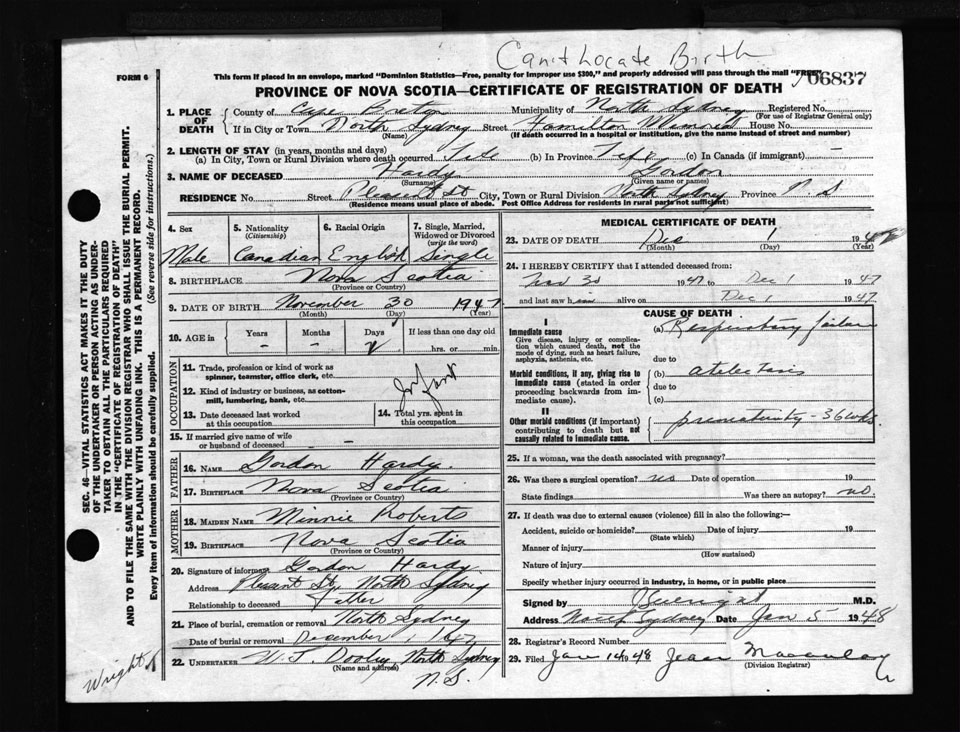 Can't Locate Birth
FORM 6
This form if placed in an envelope, marked "Dominion Statistics—Free, penalty for improper use $300," and properly addressed will pass through the mail "FREE"
66837
PROVINCE OF NOVA SCOTIA—CERTIFICATE OF REGISTRATION OF DEATH
1. PLACE OF DEATH
County of Cape Breton Municipality of North Sydney Registered No.
(For use of Registrar General only)
If in City or Town North Sydney Street Hamilton Memorial House No.
(Name) (If death occurred in a hospital or institution, give the name instead of street and number)
2. LENGTH OF STAY (in years, months and days)
(a) In City, Town or Rural Division where death occurred Life (b) In Province Life (c) In Canada (if immigrant) —
3. NAME OF DECEASED Hardy Gordon
(Surname) (Given name or names)
RESIDENCE No. Street Pleasant St City, Town or Rural Division North Sydney Province N.S
(Residence means usual place of abode. Post Office Address for residents in rural parts not sufficient)
4. Sex 5. Nationality (Citizenship) 6. Racial Origin 7. Single, Married, Widowed or Divorced (write the word)
Male Canadian English Single
8. BIRTHPLACE Nova Scotia
(Province or Country)
9. DATE OF BIRTH November 30 1947
(Month) (Day) (Year)
10. AGE in Years Months Days If less than one day old
— — hrs. or min.
OCCUPATION
11. Trade, profession or kind of work as spinner, teamster, office clerk, etc.
12. Kind of industry or business, as cotton-mill, lumbering, bank, etc.
Infant
13. Date deceased last worked at this occupation
14. Total yrs. spent in this occupation
15. If married give name of wife or husband of deceased —
FATHER
16. NAME Gordon Hardy
17. BIRTHPLACE Nova Scotia
(Province or Country)
MOTHER
18. MAIDEN NAME Minnie Roberts
19. BIRTHPLACE Nova Scotia
(Province or Country)
20. Signature of informant Gordon Hardy
Address Plesant St, North Sydney
Relationship to deceased Father
21. Place of burial, cremation or removal North Sydney
Date of burial or removal December 1, 1947
22. UNDERTAKER W. J. Dooley, North Sydney
(Name and address)
N.S.
MEDICAL CERTIFICATE OF DEATH
23. DATE OF DEATH Dec 1 1947
(Month) (Day) (Year)
24. I HEREBY CERTIFY that I attended deceased from:
Nov 30 1947 to Dec 1 1947
and last saw him alive on Dec 1 1947
CAUSE OF DEATH
I
Immediate cause (a) Respiratory failure
Give disease, injury or complication which caused death, not the mode of dying, such as heart failure, asphyxia, asthenia, etc.
due to
Morbid conditions, if any, giving rise to immediate cause (stated in order proceeding backwards from immediate cause).
(b) atelectasis
due to
(c)
II
Other morbid conditions (if important) contributing to death but not causally related to immediate cause.
prematurity - 36 wks.
25. If a woman, was the death associated with pregnancy?
26. Was there a surgical operation? no Date of operation 19
State findings Was there an autopsy? no
27. If death was due to external causes (violence) fill in also the following:—
Accident, suicide or homicide? Date of injury 19
(State which)
Manner of injury
(How sustained)
Nature of injury
Specify whether injury occurred in industry, in home, or in public place
Signed by M.D.
Address North Sydney Date Jan 5 1948
28. Registrar's Record Number
29. Filed Jan 14 1948 Jean
(Division Registrar)
SEC. 46—VITAL STATISTICS ACT MAKES IT THE DUTY
OF THE UNDERTAKER OR PERSON ACTING AS UNDER-
TAKER TO OBTAIN ALL THE PARTICULARS REQUIRED
IN THE "CERTIFICATE OF REGISTRATION OF DEATH"
AND TO FILE THE SAME WITH THE DIVISION REGISTRAR WHO SHALL ISSUE THE BURIAL PERMIT.
WRITE PLAINLY WITH UNFADING INK. THIS IS A PERMANENT RECORD.
Every item of information should be carefully supplied. (See reverse side for instructions.)
Wright